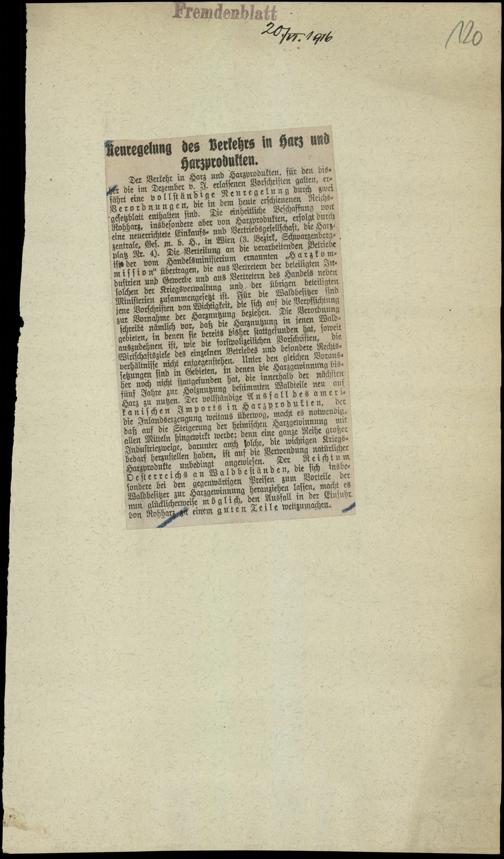 Fremdenblatt
20/VI. 1916
120
Neuregelung des Verkehrs in Harz und
Harzprodukten.
Der Verkehr in Harz und Harzprodukten, für den bis-
her die im Dezember v. J. erlassenen Vorschriften galten, er-
fährt eine vollständige Neuregelung durch zwei
Verordnungen, die in dem heute erschienenen Reichs-
gesetzblatt enthalten sind. Die einheitliche Beschaffung von
Rohharz, insbesondere aber von Harzprodukten, erfolgt durch
eine neuerrichtete Einkaufs- und Vertriebsgesellschaft, die Harz-
zentrale, Ges. m. b. H., in Wien (3. Bezirk, Schwarzenberg-
platz Nr. 4). Die Verteilung an die verarbeitenden Betriebe
ist der vom Handelsministerium ernannten „Harzkom-
mission" übertragen, die aus Vertretern der beteiligten In-
dustrien und Gewerbe und aus Vertretern des Handels neben
solchen der Kriegsverwaltung und der übrigen beteiligten
Ministerien zusammengesetzt ist. Für die Waldbesitzer sind
jene Vorschriften von Wichtigkeit, die sich auf die Verpflichtung
zur Vornahme der Harznutzung beziehen. Die Verordnung
schreibt nämlich vor, daß die Harznutzung in jenen Wald-
gebieten, in denen sie bereits bisher stattgefunden hat, soweit
auszudehnen ist, wie die forstpolizeilichen Vorschriften, die
Wirtschaftsziele des einzelnen Betriebes und besondere Rechts-
verhältnisse nicht entgegenstehen. Unter den gleichen Voraus-
setzungen sind in Gebieten, in denen die Harzgewinnung bis-
her noch nicht stattgefunden hat, die innerhalb der nächsten
fünf Jahre zur Holznutzung bestimmten Waldteile neu auf
Harz zu nutzen. Der vollständige Ausfall des ameri-
kanischen Imports in Harzprodukten, der
die Inlandserzeugung weitaus überwog, macht es notwendig,
daß auf die Steigerung der heimischen Harzgewinnung mit
allen Mitteln hingewirkt werde; denn eine ganze Reihe großer
Industriezweige, darunter auch solche, die wichtigen Kriegs-
bedarf herzustellen haben, ist auf die Verwendung natürlicher
Harzprodukte unbedingt angewiesen. Der Reichtum
Oesterreichs an Waldbeständen, die sich insbe-
sondere bei den gegenwärtigen Preisen zum Vorteile der
Waldbesitzer zur Harzgewinnung heranziehen lassen, macht es
nun glücklicherweise möglich, den Ausfall in der Einfuhr
von Rohharz zu einem guten Teile wettzumachen.